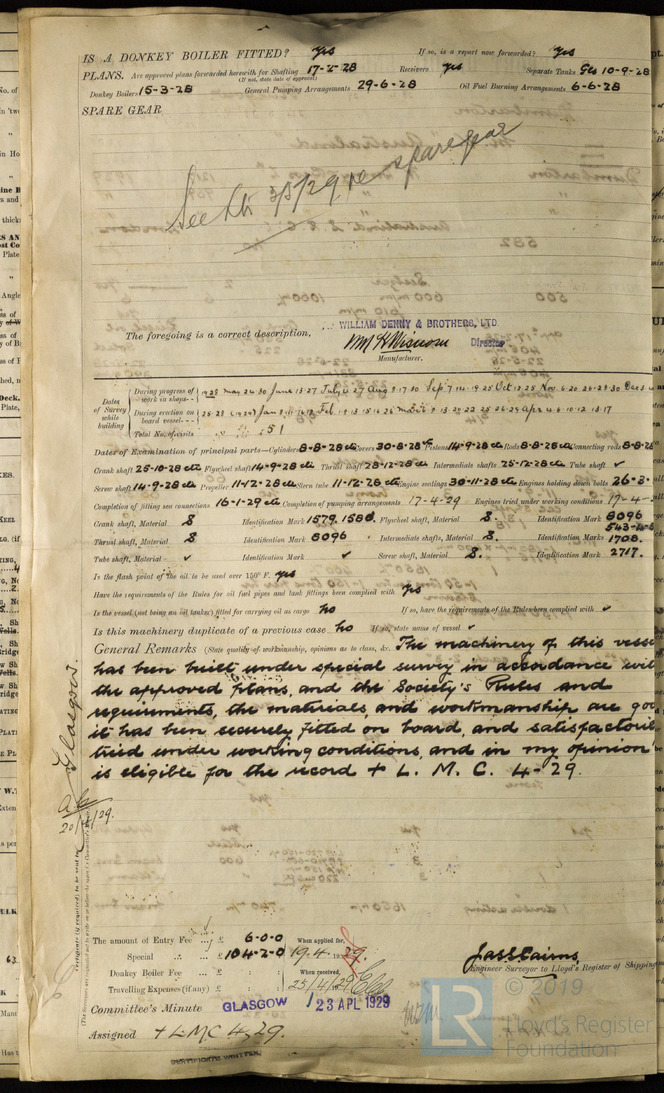 IS A DONKEY BOILER FITTED? Yes If so, is a report now forwarded? Yes
PLANS. Are approved plans forwarded herewith for Shafting 17-2-28 Receivers Yes Separate Tanks Gls 10-9-28
(If not, state date of approval)
Donkey Boilers 15-3-28 General Pumping Arrangements 29-6-28 Oil Fuel Burning Arrangements 6-6-28
SPARE GEAR
See Ltr 3/5/29 re spare gear
The foregoing is a correct description,
WILLIAM DENNY & BROTHERS, LTD
Director
Manufacturer.
Dates of Survey while building
During progress of work in shops-- 1928 May 24 30 June 13 27 July 4 27 Aug 8 17 30 Sep 7 14 19 25 Oct 12 25 Nov 6 20 26 28 30 Dec
During erection on board vessel---
Total No. of visits 51
Dates of Examination of principal parts—Cylinders 8-8-28 etc Covers 30-8-28 Pistons 14-9-28 etc Rods 8-8-28 etc Connecting rods 8-8-28
Crank shaft 25-10-28 etc Flywheel shaft 14-9-28 etc Thrust shaft 28-12-28 etc Intermediate shafts 25-12-28 etc Tube shaft ✓
Screw shaft 14-9-28 etc Propeller 11-12-28 etc Stern tube 11-12-28 etc Engine seatings 30-11-28 etc Engines holding down bolts 26-3-
Completion of fitting sea connections 16-1-29 etc Completion of pumping arrangements 17-4-29 Engines tried under working conditions 17-4-
Crank shaft, Material S Identification Mark 1579.1580. Flywheel shaft, Material S. Identification Mark 8096
Thrust shaft, Material S Identification Mark 8096 Intermediate shafts, Material S. Identification Marks 1708.
Tube shaft, Material ✓ Identification Mark ✓ Screw shaft, Material S Identification Mark 2717.
Is the flash point of the oil to be used over 150° F. Yes
Have the requirements of the Rules for oil fuel pipes and tank fittings been complied with Yes
Is the vessel (not being an oil tanker) fitted for carrying oil as cargo No If so, have the requirements of the Rules been complied with ✓
Is this machinery duplicate of a previous case No If so, state name of vessel ✓
General Remarks (State quality of workmanship, opinions as to class, &c. The machinery of this vesse
has been built under special survey in accordance wit
the approved plans, and the Society's Rules and
requirements, the materials and workmanship are goo
it has been securely fitted on board, and satisfactoril
tried under working conditions, and in my opinion
is eligible for the record + L. M. C. 4-29.
Glasgow.
The amount of Entry Fee ... £ 6-0-0 When applied for,
Special ... £ 104-2-0 19.4.1929.
Donkey Boiler Fee ... £ : : When received,
Travelling Expenses (if any) £ : : 25/4/29
Engineer Surveyor to Lloyd's Register of Shipping
Committee's Minute GLASGOW 23 APL 1929
Assigned + LMC 4,29.
CERTIFICATE WRITTEN.
LR
© 2019
Lloyd's Register
Foundation